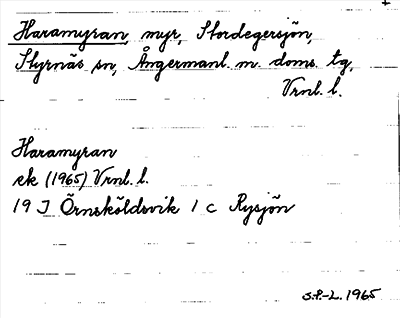 Haramyran, myr, Stordegersjön,
Styrnäs sn, Ångermanl. m. doms. tg,
Vrnl. l.
Haramyran
ek (1965) Vrnl. l.
19 J Örnsköldsvik 1 c Rysjön
S.P.-L. 1965